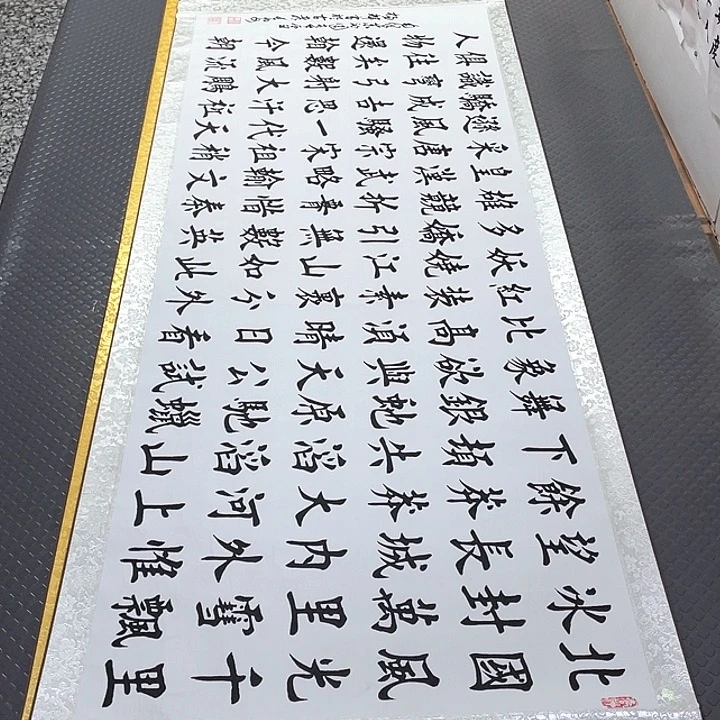 北國風光千里
冰封萬里雪飄
望長城內外惟
餘莽莽大河上
下頓失滔滔山
舞銀蛇原馳蠟
象欲與天公試
比高須晴日看
紅裝素裹分外
妖嬈江山如此
多嬌引無數英
雄競折尊惜秦
皇漢武略輸文
采唐宗宋祖稍
遜風騷一代天
驕成吉思汗祗
識彎弓射大鵰
俱往矣數風流
人物還看今朝